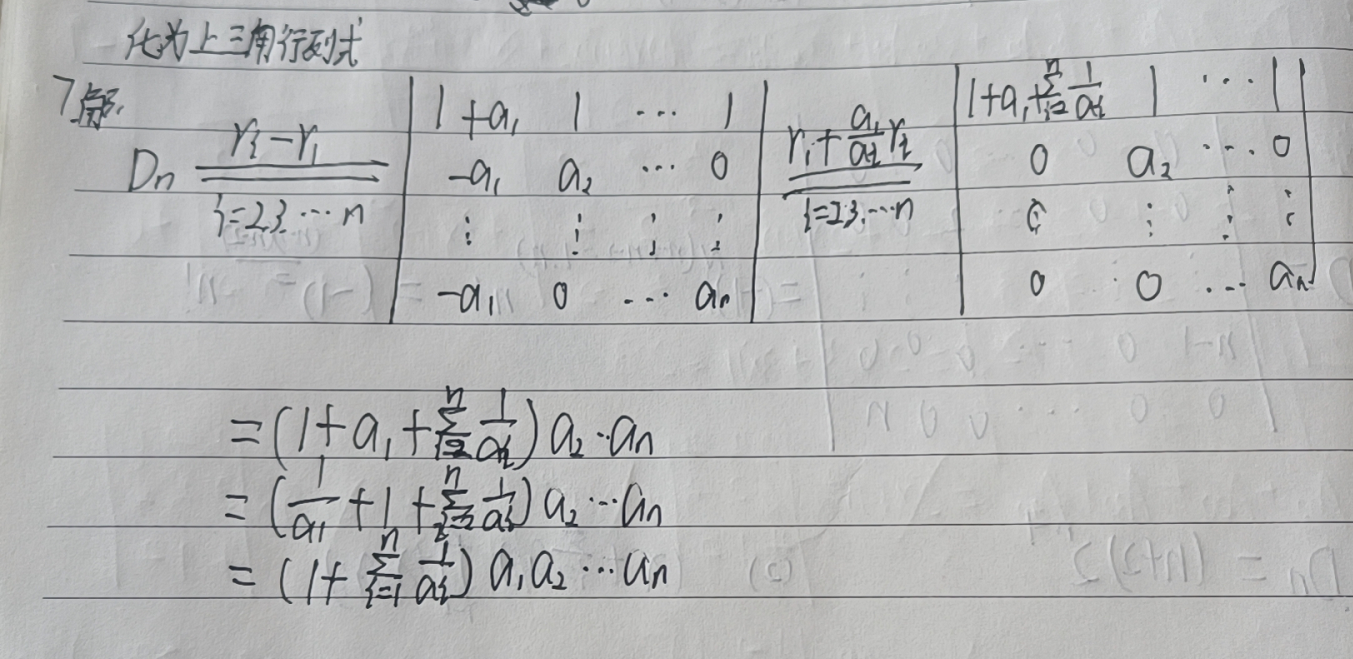 化为上三角行列式
7解.
D_n \xlongequal[i=2,3,\cdots n]{r_i-r_1} \begin{vmatrix} 1+a_1 & 1 & \cdots & 1 \\ -a_1 & a_2 & \cdots & 0 \\ \vdots & \vdots & \vdots & \vdots \\ -a_1 & 0 & \cdots & a_n \end{vmatrix} \xlongequal[i=2,3,\cdots n]{r_1+\frac{a_1}{a_i}r_i} \begin{vmatrix} 1+a_1+\sum_{i=2}^{n}\frac{1}{a_i} & 1 & \cdots & 1 \\ 0 & a_2 & \cdots & 0 \\ \vdots & \vdots & \vdots & \vdots \\ 0 & 0 & \cdots & a_n \end{vmatrix}
=(1+a_1+\sum_{i=2}^{n}\frac{1}{a_i})a_2 \cdot a_n
=(\frac{1}{a_1}+1+\sum_{i=2}^{n}\frac{1}{a_i})a_2\cdots a_n
=(1+\sum_{i=1}^{n}\frac{1}{a_i})a_1a_2\cdots a_n